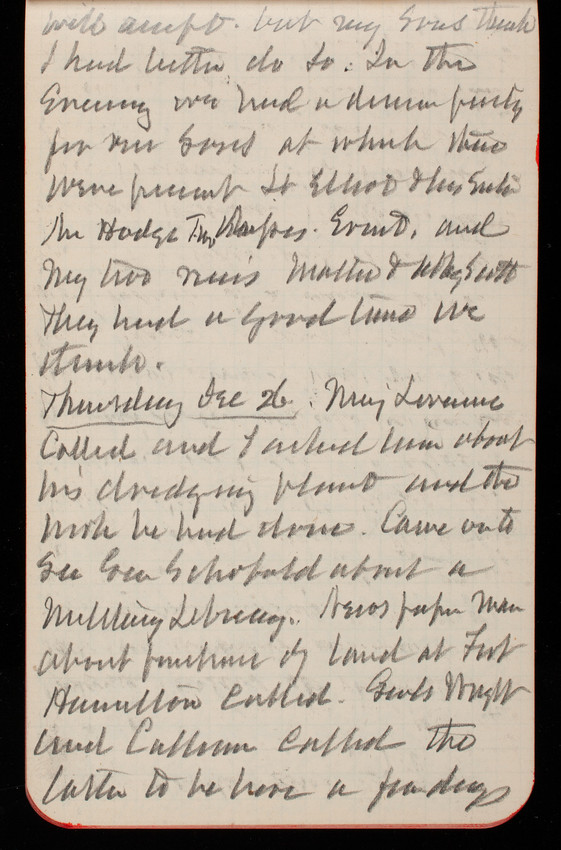 will accept. but my Sons think
I had better do so. In the
Evening we had a dinner party
for our Sons at which there
were present Lt Elliot &
Mr Hodge and
My two
They had a good time we
think.
Thursday Dec 26. Maj
Called and I asked him about
his dredging plant and the
work he had done. Came up to
See Gen Schofield about a
Military Library. News paper man
about purchase of land at Fort
Hamilton Called. Genls Wright
and Calhoun called the
latter to be here a few days